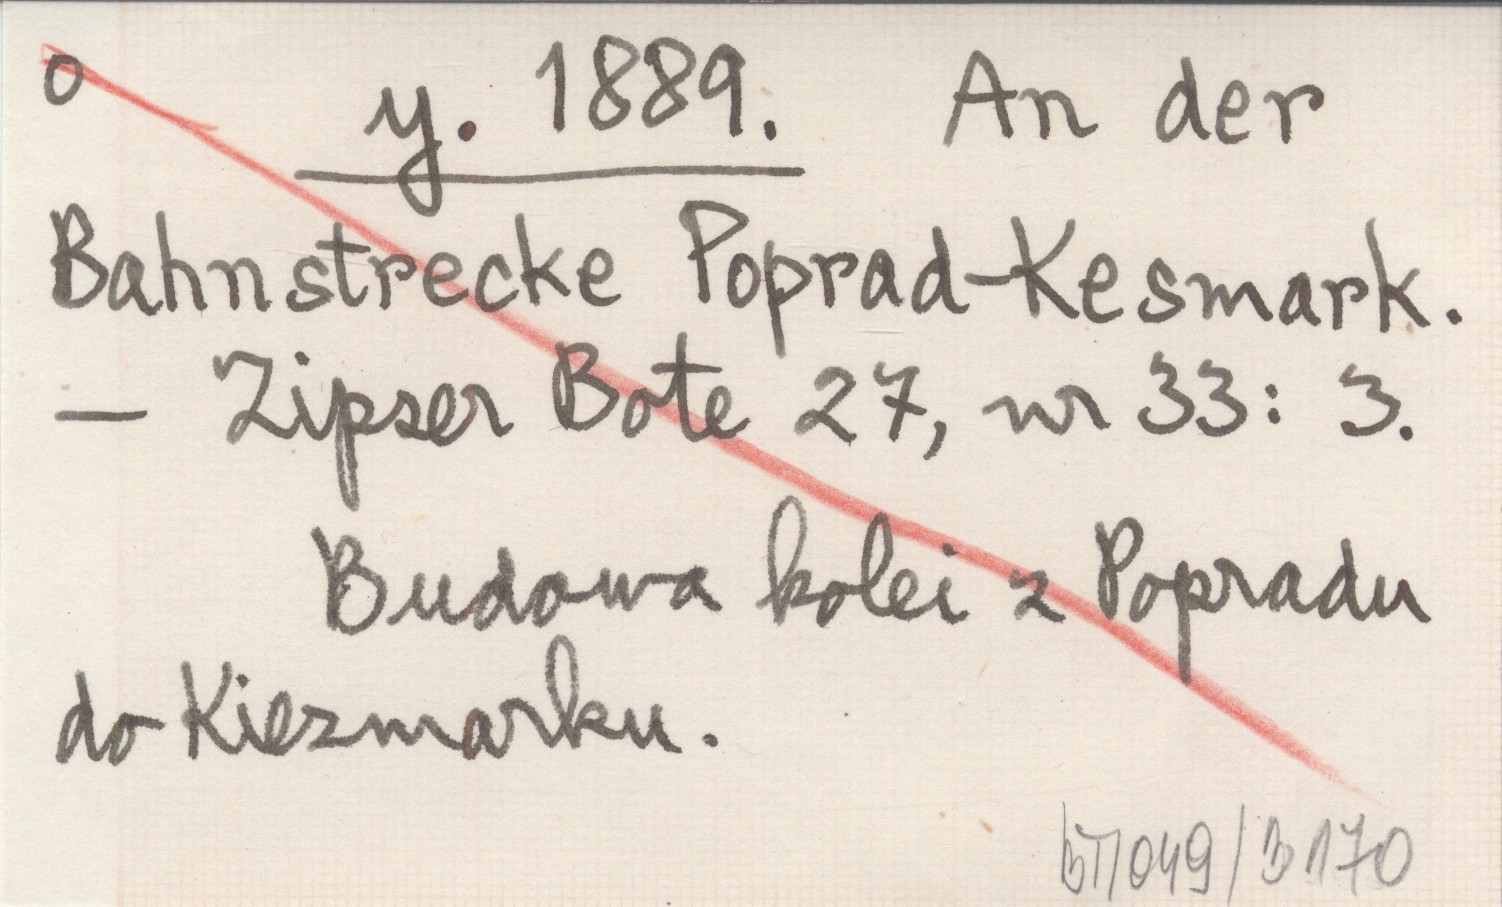 o y. 1889. An der
Bahnstrecke Poprad-Kesmark.
— Zipser Bote 27, nr 33: 3.
Budowa kolei z Popradu
do Kiezmarku.
049/3170